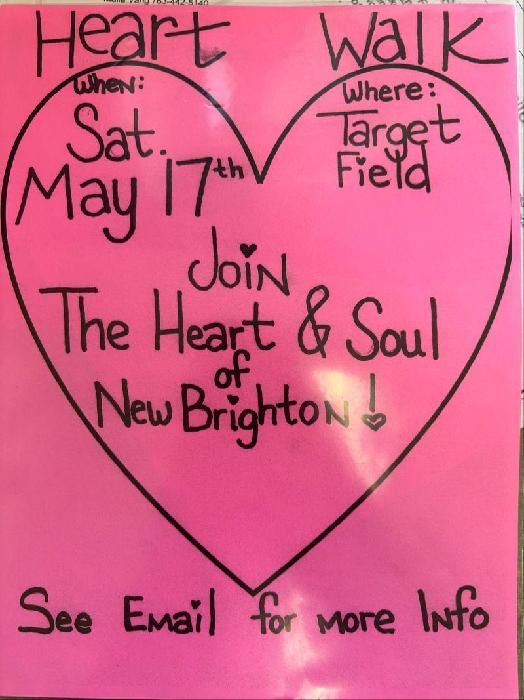 Heart Walk
When:
Sat.
May 17th
Where:
Target
Field
Join
The Heart & Soul
of
New Brighton!
See Email for more Info